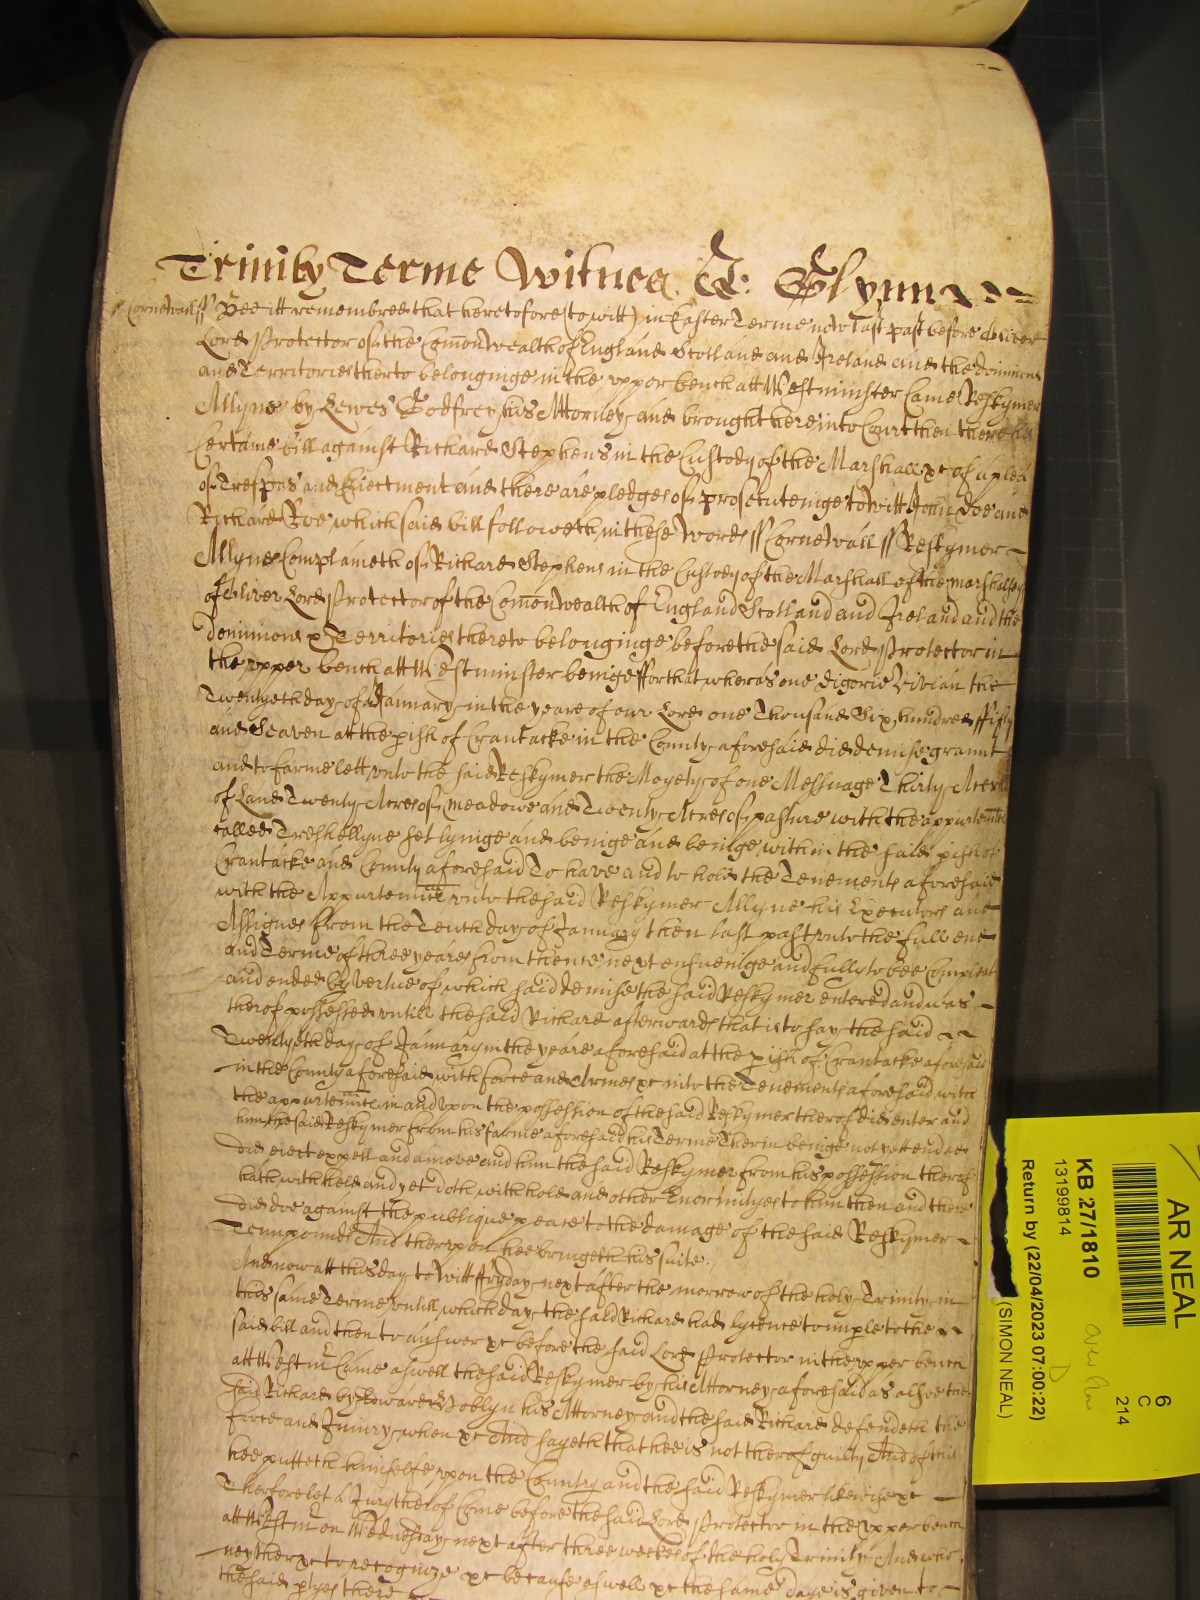 Trinity Terme Witnes J: Glynn
Cornewall ss Bee itt remembred that heretofore (to witt) in Easter Terme now last past before Oliver
Lord Protector of the Com̄onwealth of England Scotland and Ireland and the dominions
and Territories therto belonginge in the vpper bench att Westminster Came Reskymer
Allyne by Lewes Godfrey his Attorney and brought here into Court then there his
Certaine bill against Richard Stephens in the Custody of the Marshall &c of a plea
of Trespas and Eiectment and there are pledges of prosecuteinge to witt John Doe and
Richard Roe which said bill followeth in these words ss Cornewall ss Reskymer
Allyne Complaineth of Richard Stephens in the Custody of the Marshall of the marshallsey
of Oliver Lord Protector of the Com̄onwealth of England Scotland and Ireland and the
dominions & Territories thereto belonginge before the said Lord Protector in
the vpper bench att Westminster beinge ffor that wheras one Digorie Vivian the
Twentyeth day of January in the yeare of our Lord one Thousand Six hundred ffifty
and Seaven at the pish of Crantacke in the County aforesaid did demise graunt
and to farme lett vnto the said Reskymer the Moyety of one Messuage Thirty Acres
of Land Twenty Acres of meadowe and Twenty Acres of pasture with the appurtenn̄ces
called Treskellyne set lyinge and beinge and beinge within the said pish of
Crantacke and County aforesaid To have and to hold the Tenements aforesaid
with the Appurtenn̄ces vnto the said Reskymer Allyne his Executors and
Assignes from the Tenth day of January then last past vnto the full end
and Terme of three yeares from thence next ensueinge and fully to bee Compleat
and ended By vertue of which said demise the said Reskymer entered and was
therof possessed vntill the said Richard afterwards that is to say the said
Twentyeth day of January in the yeare aforesaid at the pish of Crantacke aforesaid
in the County aforesaid with force and Armes &c into the Tenements aforesaid with
the appurtenn̄ces in and vpon the possession of the said Reskymer therof did enter and
him the said Reskymer from his farme aforesaid his Terme Therin beinge not yett ended
did eiect expell and amove and him the said Reskymer from his possession therof
hath withheld and yet doth withhold and other Enormityes to him then and there
did doe against the publique peace to the damage of the said Reskymer
Tenn pounds And thervpon hee bringeth his suite.
And now att this day to witt ffryday next after the morrow of the holy Trinity in
this same Terme vntill which day the said Richard had lycence to imple to the
said bill and then to answer &c before the said Lord Protector in the vpper bench
att Westm̄ Came aswell the said Reskymer by his Attorney aforesaid as also the
said Richard by Edward Noblyn his Attorney and the said Richard defendeth the
force and Iniury when &c And sayeth that hee is not therof guilty And of this
hee putteth himselfe vpon the Country and the said Reskymer likewise &c
Therfore let a Jury therof Come before the said Lord Protector in the vpper bench
att Westm̄ on Wednesday next after three weekes of the holy Trinity And who
neyther &c to recognize &c because aswell &c the same day is given to
the said ptyes there
AR NEAL
KB 27/1810
13199814
Return by (22/04/2023 07:00:22)
(SIMON NEAL)
6
C
214
D